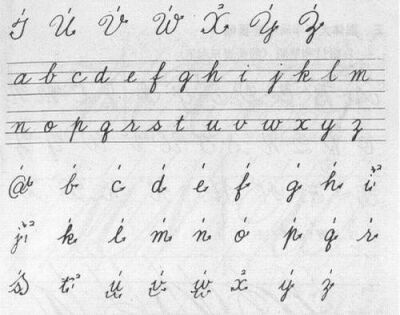 T U V W X Y Z
a b c d e f g h i j k l m
n o p q r s t u v w x y z
a b c d e f g h i
j k l m n o p q r
s t u v w x y z